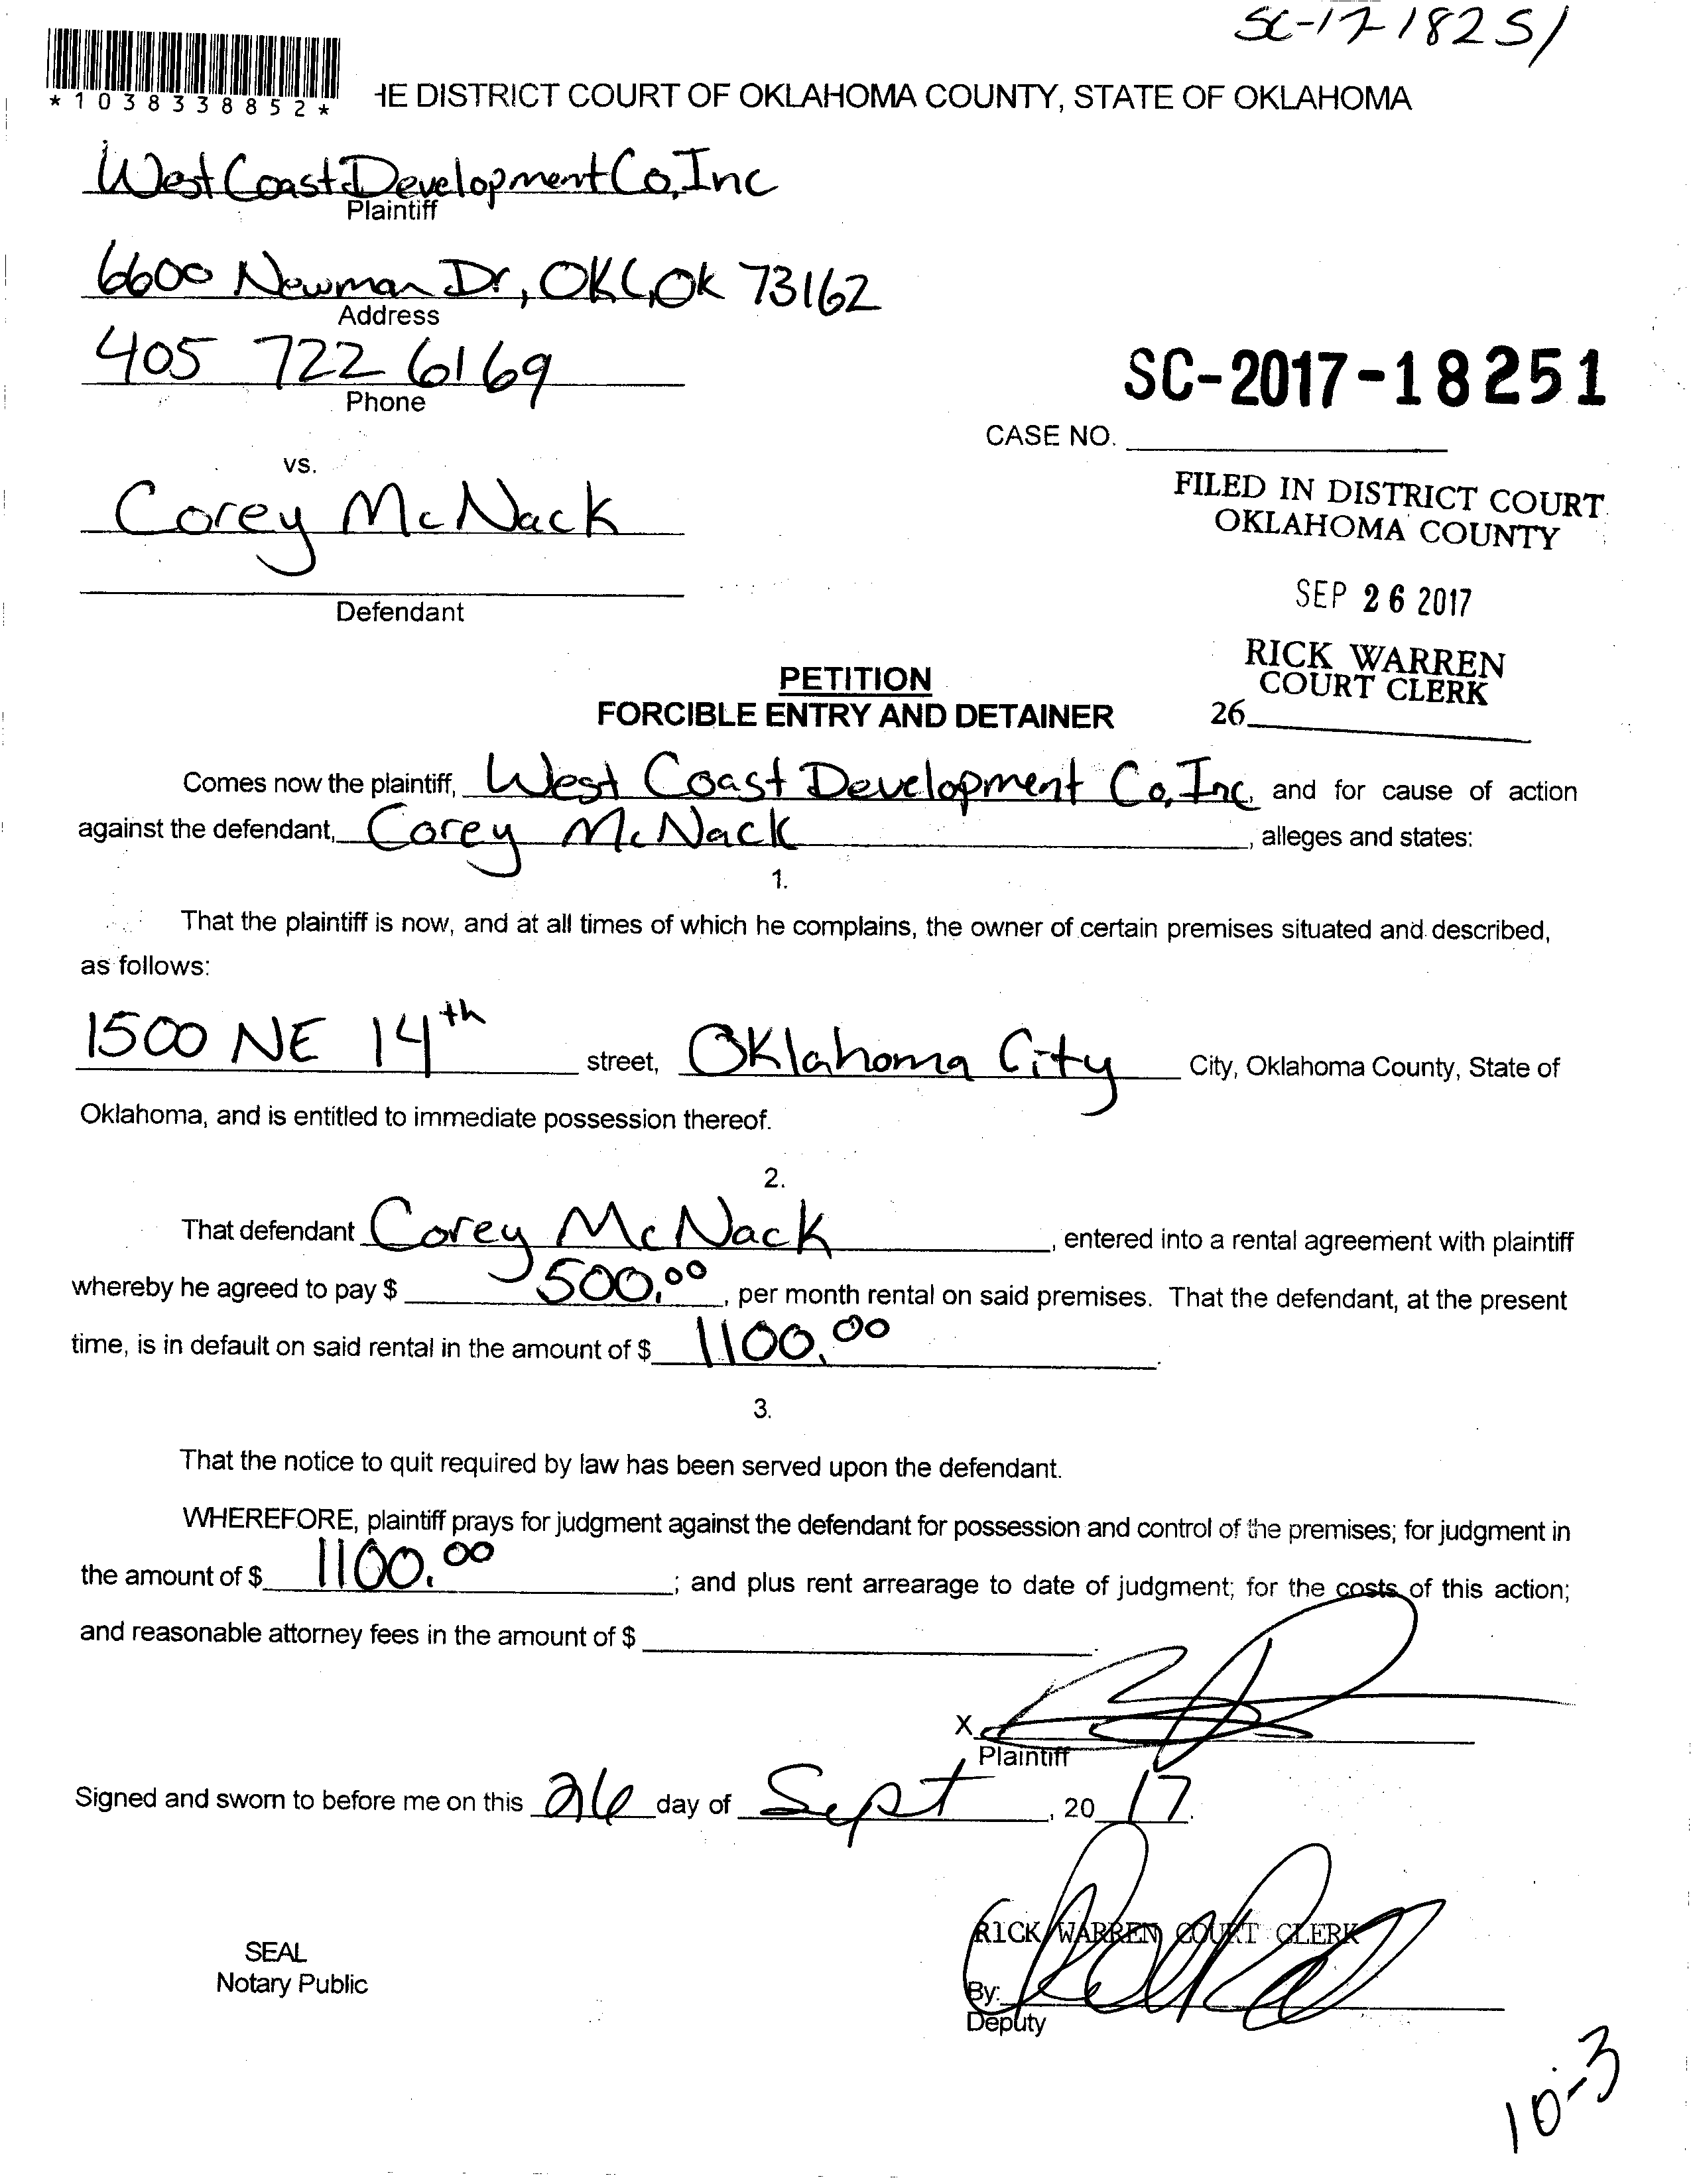 SC-17-18251
*1038338852*
HE DISTRICT COURT OF OKLAHOMA COUNTY, STATE OF OKLAHOMA
West Coast Development Co, Inc
Plaintiff
6600 Newman Dr, OKC, OK 73162
Address
405 722 6169
Phone
SC-2017-18251
CASE NO.
vs.
Corey McNack
FILED IN DISTRICT COURT
OKLAHOMA COUNTY
SEP 26 2017
Defendant
RICK WARREN
COURT CLERK
26
PETITION
FORCIBLE ENTRY AND DETAINER
Comes now the plaintiff, West Coast Development Co, Inc, and for cause of action
against the defendant, Corey McNack, alleges and states:
1.
That the plaintiff is now, and at all times of which he complains, the owner of certain premises situated and described,
as follows:
1500 NE 14th street, Oklahoma City City, Oklahoma County, State of
Oklahoma, and is entitled to immediate possession thereof.
2.
That defendant Corey McNack, entered into a rental agreement with plaintiff
whereby he agreed to pay $ 500.00, per month rental on said premises. That the defendant, at the present
time, is in default on said rental in the amount of $ 1100.00.
3.
That the notice to quit required by law has been served upon the defendant.
WHEREFORE, plaintiff prays for judgment against the defendant for possession and control of the premises; for judgment in
the amount of $ 1100.00; and plus rent arrearage to date of judgment; for the costs of this action;
and reasonable attorney fees in the amount of $
X
Plaintiff
Signed and sworn to before me on this 26 day of Sept, 20 17.
RICK WARREN COURT CLERK
SEAL
Notary Public
By:
Deputy
10-3